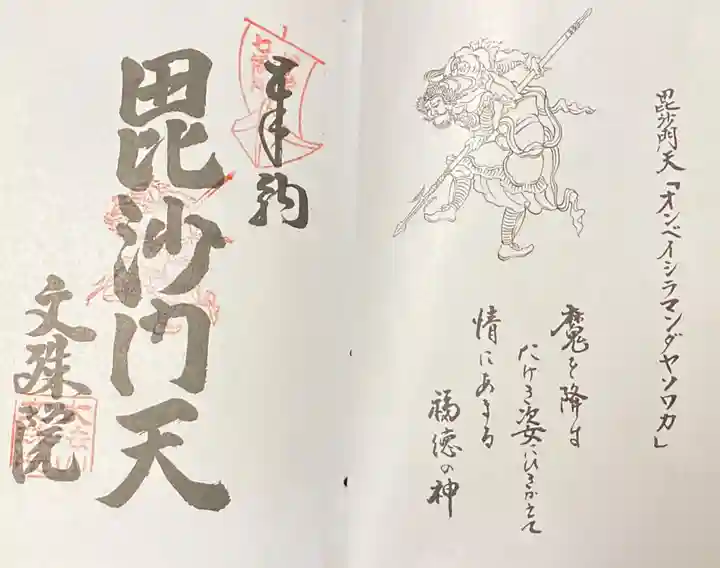 毘沙門天「オンベイシラマンダヤソワカ」
魔を降す
たけき姿にひきかえて
情にあまる
福徳の神
奉納
毘沙門天
文殊院